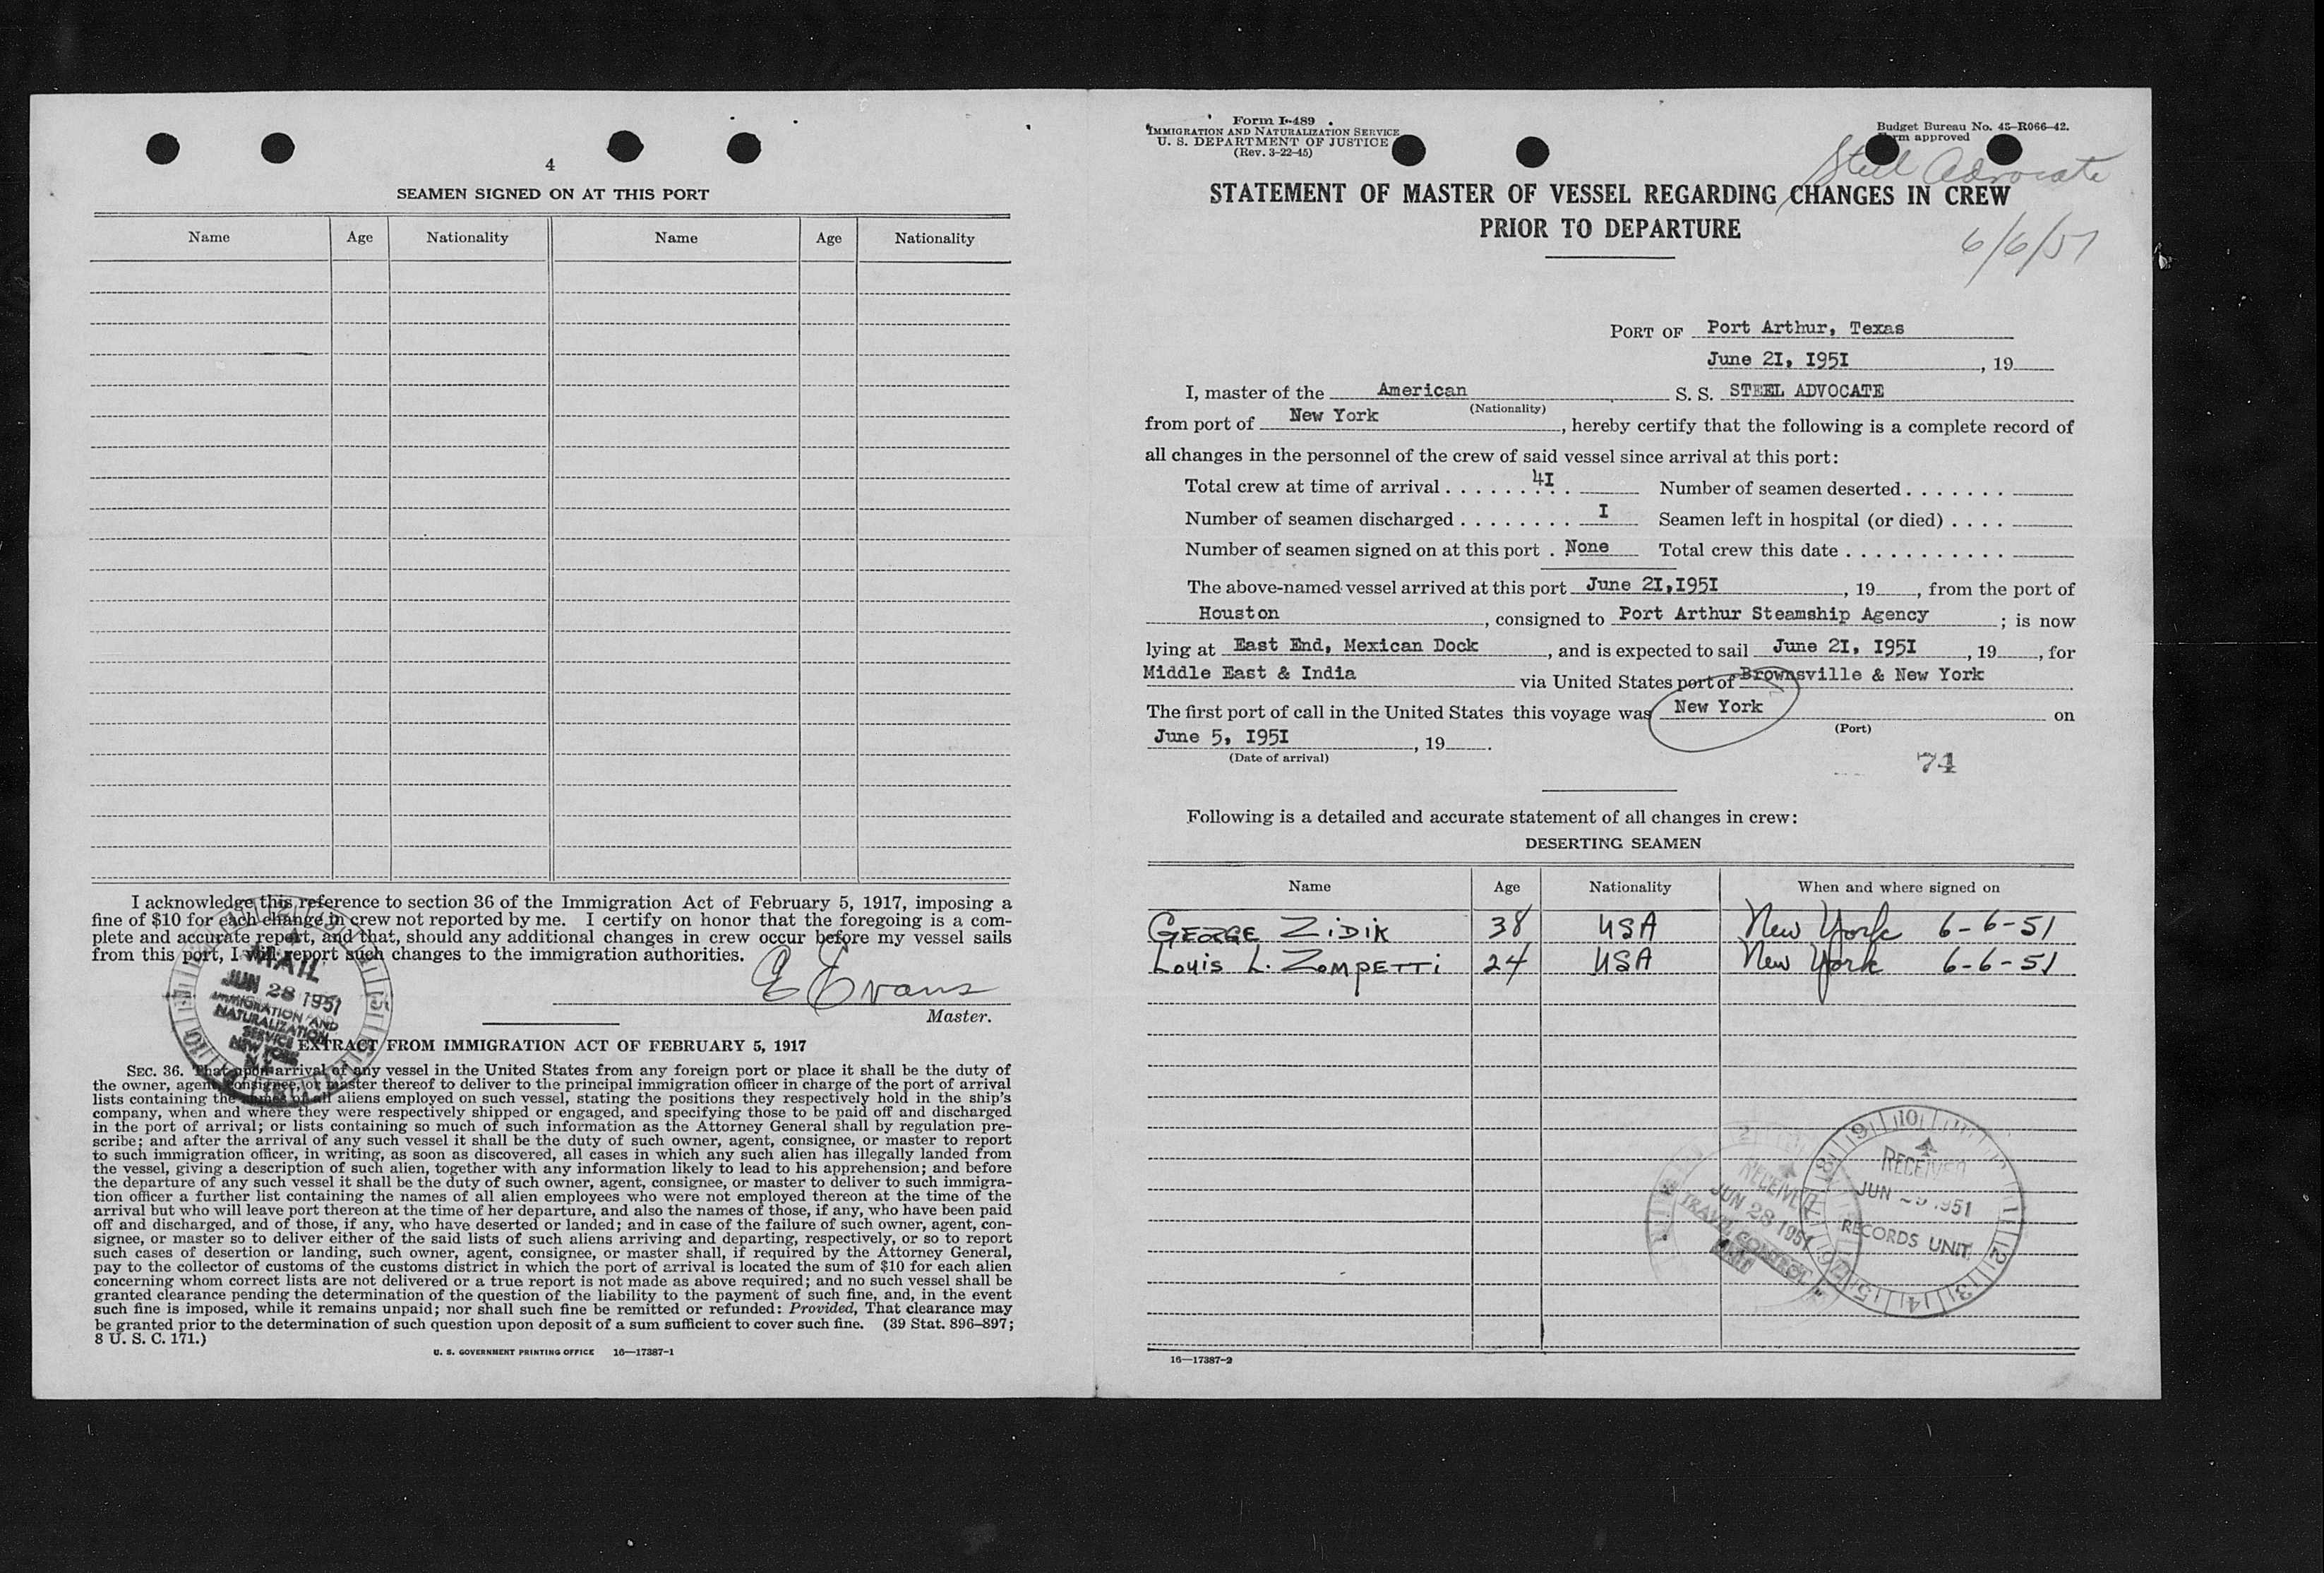 4
SEAMEN SIGNED ON AT THIS PORT
Name Age Nationality Name Age Nationality
I acknowledge this reference to section 36 of the Immigration Act of February 5, 1917, imposing a
fine of $10 for each change in crew not reported by me. I certify on honor that the foregoing is a com-
plete and accurate report, and that, should any additional changes in crew occur before my vessel sails
from this port, I will report such changes to the immigration authorities.
E Evans
Master.
MAIL
JUN 28 1951
IMMIGRATION AND
NATURALIZATION
SERVICE
NEW YORK
N.Y.
EXTRACT FROM IMMIGRATION ACT OF FEBRUARY 5, 1917
SEC. 36. That upon arrival of any vessel in the United States from any foreign port or place it shall be the duty of
the owner, agent, consignee, or master thereof to deliver to the principal immigration officer in charge of the port of arrival
lists containing the names of all aliens employed on such vessel, stating the positions they respectively hold in the ship's
company, when and where they were respectively shipped or engaged, and specifying those to be paid off and discharged
in the port of arrival; or lists containing so much of such information as the Attorney General shall by regulation pre-
scribe; and after the arrival of any such vessel it shall be the duty of such owner, agent, consignee, or master to report
to such immigration officer, in writing, as soon as discovered, all cases in which any such alien has illegally landed from
the vessel, giving a description of such alien, together with any information likely to lead to his apprehension; and before
the departure of any such vessel it shall be the duty of such owner, agent, consignee, or master to deliver to such immigra-
tion officer a further list containing the names of all alien employees who were not employed thereon at the time of the
arrival but who will leave port thereon at the time of her departure, and also the names of those, if any, who have been paid
off and discharged, and of those, if any, who have deserted or landed; and in case of the failure of such owner, agent, con-
signee, or master so to deliver either of the said lists of such aliens arriving and departing, respectively, or so to report
such cases of desertion or landing, such owner, agent, consignee, or master shall, if required by the Attorney General,
pay to the collector of customs of the customs district in which the port of arrival is located the sum of $10 for each alien
concerning whom correct lists are not delivered or a true report is not made as above required; and no such vessel shall be
granted clearance pending the determination of the question of the liability to the payment of such fine, and, in the event
such fine is imposed, while it remains unpaid; nor shall such fine be remitted or refunded: Provided, That clearance may
be granted prior to the determination of such question upon deposit of a sum sufficient to cover such fine. (39 Stat. 896–897;
8 U. S. C. 171.)
U. S. GOVERNMENT PRINTING OFFICE 16—17387-1
Form I-489
IMMIGRATION AND NATURALIZATION SERVICE
U. S. DEPARTMENT OF JUSTICE
(Rev. 3-22-45)
Budget Bureau No. 43-R066-42.
Form approved
Steel Advocate
STATEMENT OF MASTER OF VESSEL REGARDING CHANGES IN CREW
PRIOR TO DEPARTURE
6/6/51
PORT OF Port Arthur, Texas
June 2I, I95I , 19
I, master of the American S. S. STEEL ADVOCATE
(Nationality)
from port of New York , hereby certify that the following is a complete record of
all changes in the personnel of the crew of said vessel since arrival at this port:
Total crew at time of arrival . . . . . . . . 4I Number of seamen deserted . . . . . . .
Number of seamen discharged . . . . . . . . I Seamen left in hospital (or died) . . . .
Number of seamen signed on at this port . None Total crew this date . . . . . . . . . . .
The above-named vessel arrived at this port June 2I,I95I , 19 , from the port of
Houston , consigned to Port Arthur Steamship Agency ; is now
lying at East End, Mexican Dock , and is expected to sail June 2I, I95I , 19 , for
Middle East & India via United States port of Brownsville & New York
The first port of call in the United States this voyage was New York on
(Port)
June 5, I95I , 19 .
(Date of arrival)
74
Following is a detailed and accurate statement of all changes in crew:
DESERTING SEAMEN
Name Age Nationality When and where signed on
GEORGE ZIDIK 38 USA New York 6-6-51
Louis L. ZOMPETTI 24 USA New York 6-6-51
RECEIVED
JUN 28 1951
TRAVEL CONTROL
UNIT
RECEIVED
JUN 1951
RECORDS UNIT
16—17387-2